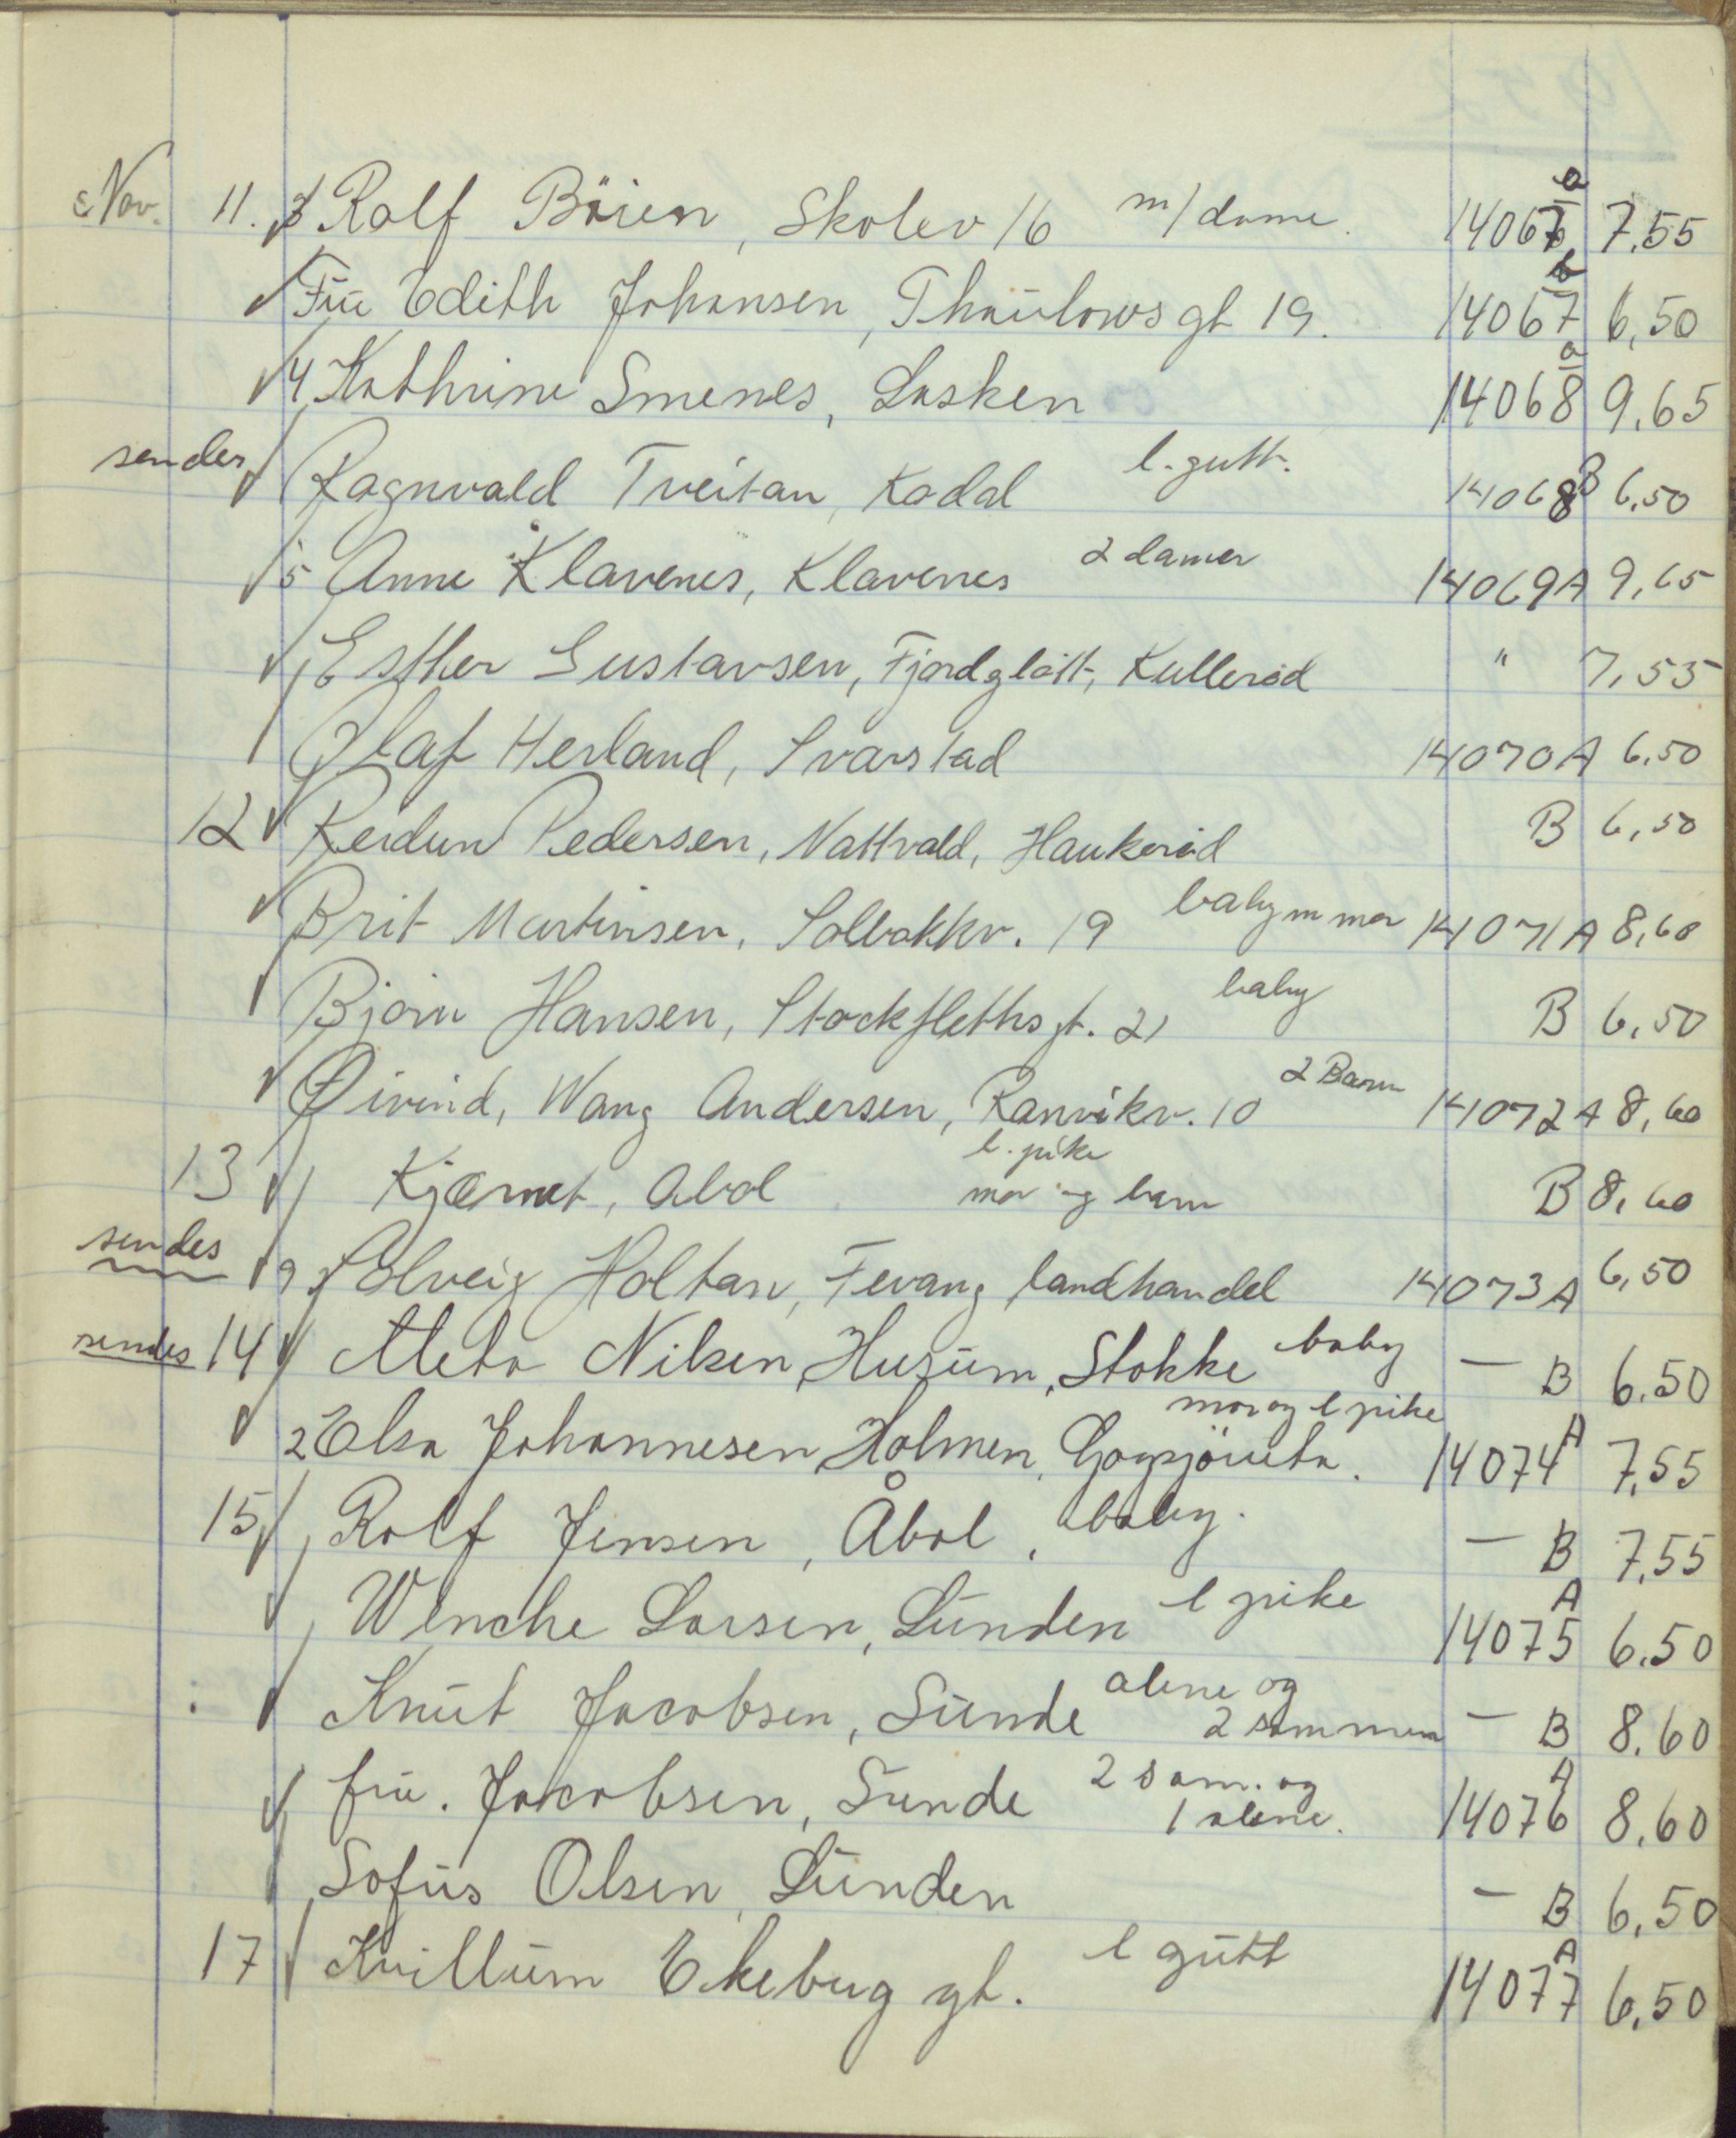 Nov. 11. 3 Rolf Böien, Skolev 16 m/dame. 14067 a 7,55
Frü Edith Johansen, Thaülowsgt 19. 14067 b 6,50
4 Kathrine Smenes, Lasken 14068 a 9,65
sendes Ragnvald Tveitan, Kodal l. gutt. 14068 B 6,50
5 Anne Klavenes, Klavenes 2 damer 14069A 9,65
Esther Gustavsen, Fjordgløtt, Kullerød " 7,55
Olaf Herland, Svarstad 14070A 6,50
12 Reidun Pedersen, Nattvald, Haukerød B 6,50
Brit Martinsen, Solbakkv. 19 baby m mor 14071A 8,60
Bjørn Hansen, Stockflethsgt. 21 baby B 6,50
Øivind, Wang Andersen, Ranvikv. 10 2 Barn 14072A 8,60
l. pike
13 Kjærnet, Abol mor og barn B 8,60
sendes 9 Solveig Holtan, Fevang landhandel 14073A 6,50
sendes 14 Meta Nilsen, Husüm, Stokke baby — B 6.50
2 Elsa Johannesen, Holmen, mor og l pike 14074 A 7,55
15 Rolf Jensen, Åbol, baby. — B 7,55
Wenche Larsen, Lünden l pike 14075 A 6.50
Knüt Jacobsen, Sünde alene og 2 sammen — B 8.60
frü. Jacobsen, Sünde 2 sam. og 1 alene. 14076 A 8.60
Sofüs Olsen, Lünden — B 6,50
17 Kvillüm Ekebug gt. l gütt 14077 A 6,50